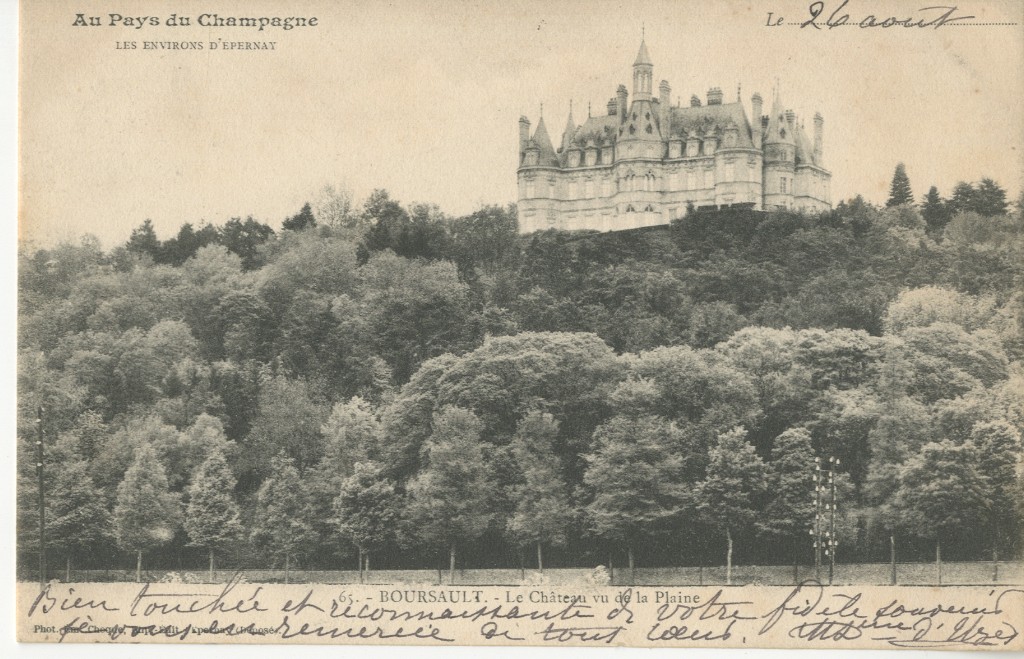 Au Pays du Champagne
LES ENVIRONS D'EPERNAY
Le 26 août
65. - BOURSAULT. - Le Château vu de la Plaine
Bien touchée et reconnaissante de votre fidèle souvenir
Phot. Edit. Epernay (Déposé)
je vous remercie de tout cœur. d'Uzès